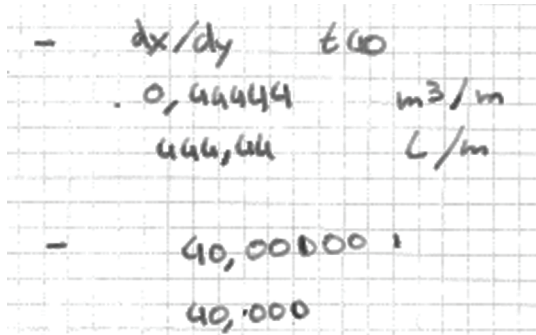 - dx/dy t40
. 0,44444 m3/m
444,44 L/m
- 40,00000
40,000